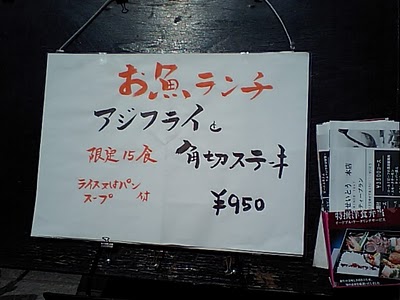 お魚ランチ
アジフライと
角切ステーキ
限定15食
ライス又はパン
スープ 付
¥950
特撰洋食弁当